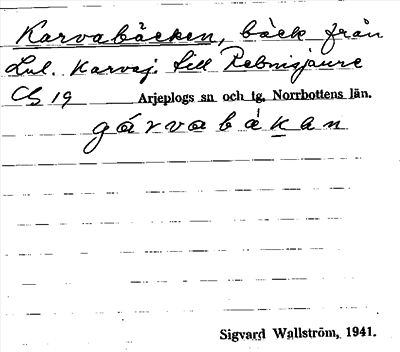 Karvabäcken, bäck från
Lul. Karvaj. till Rebnisjaure
C5 19 Arjeplogs sn och tg, Norrbottens län.
gárvabäkan
Sigvard Wallström, 1941.